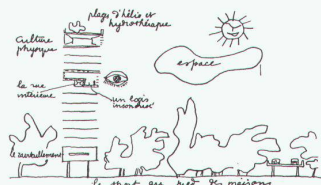 plage d'hélio et
hydrothérapie
Culture
physique
espace
la rue
intérieure
un logis
insonorisé
le ravitaillement
le sport au pied des maisons